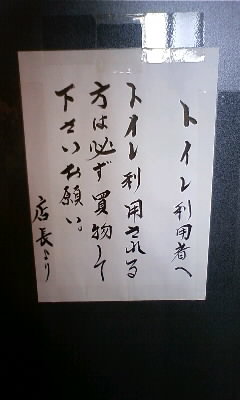 トイレ利用者へ
トイレ利用される
方は必ず買物して
下さいお願い。
店長より